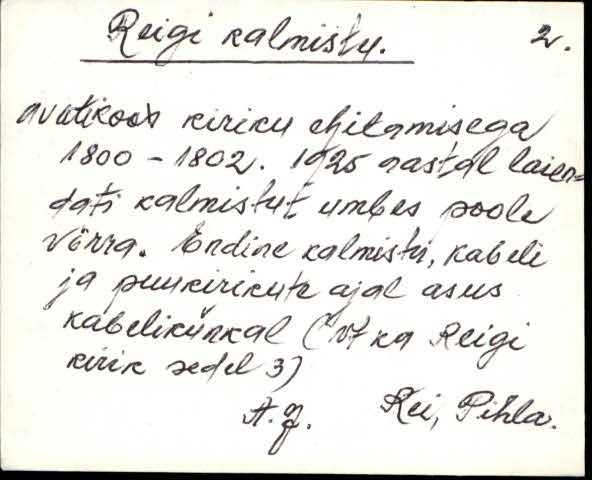 Reigi kalmistu. 2.
avati koos kiriku ehitamisega
1800 - 1802. 1925 aastal laien-
dati kalmistut umbes poole
võrra. Endine kalmistu, kabeli
ja puukirikute ajal asus
kabelikünkal (vt ka Reigi
kirik sedel 3)
A. J. Kei, Pihla.